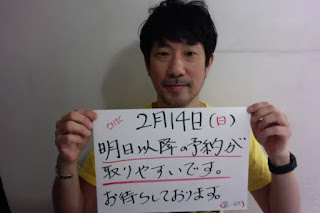 2月14日(日)
明日以降の予約が
取りやすいです。
お待ちしております。